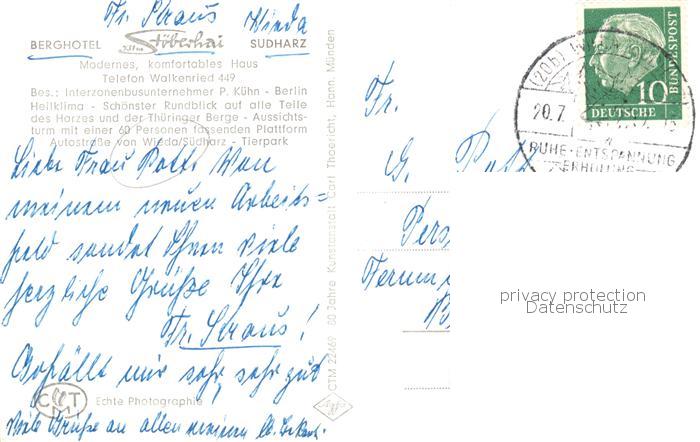 Fr. Straus Wieda
BERGHOTEL Stöberhai SÜDHARZ
Modernes, komfortables Haus
Telefon Walkenried 449
Bes.: Interzonenbusunternehmer P. Kühn - Berlin
Heilklima - Schönster Rundblick auf alle Teile
des Harzes und der Thüringer Berge - Aussichts-
turm mit einer 60 Personen fassenden Plattform
Autostraße von Wieda/Südharz - Tierpark
Liebe Frau Von
meinem neuen Arbeits=
feld sendet Ihnen viele
herzliche Grüße Ihre
Fr. Straus!
Gefällt mir sehr, sehr gut
C T M
Echte Photographie
Viele Grüße an allen meinen
CTM 22469 80 Jahre Kunstanstalt Carl Thoericht, Hann. Münden
Fr.
G.
Pers
DEUTSCHE BUNDESPOST
10
(20b)
20.7.
RUHE-ENTSPANNUNG
ERHOLUNG
privacy protection
Datenschutz